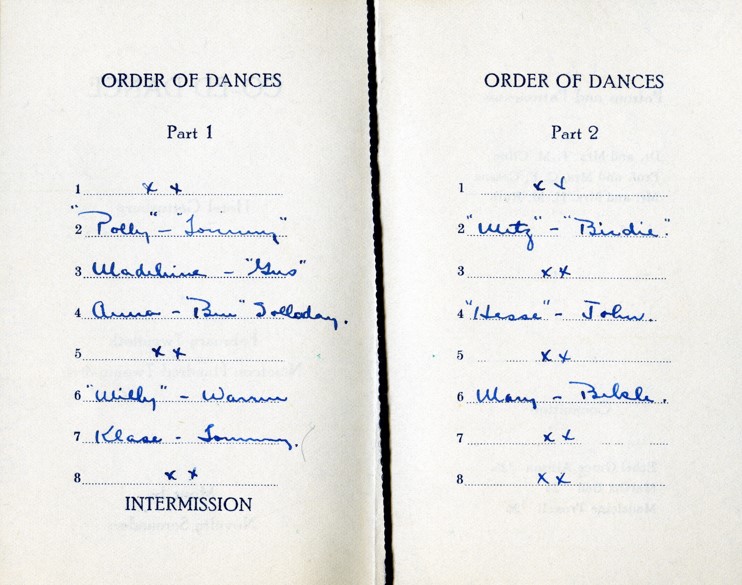 ORDER OF DANCES
Part 1
1 x x
2 "Polly" - "Tommy"
3 Madeline - "Gus"
4 Anna - "Ben" Solladay.
5 x x
6 "Willy" - Warren
7 Klase - Tommy.
8 x x
INTERMISSION
ORDER OF DANCES
Part 2
1 x x
2 "Metz" - "Birdie".
3 x x
4 "Hesse" - John.
5 x x
6 Mary -
7 x x
8 x x